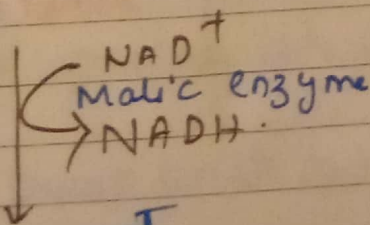 NAD+
Malic enzyme
NADH.